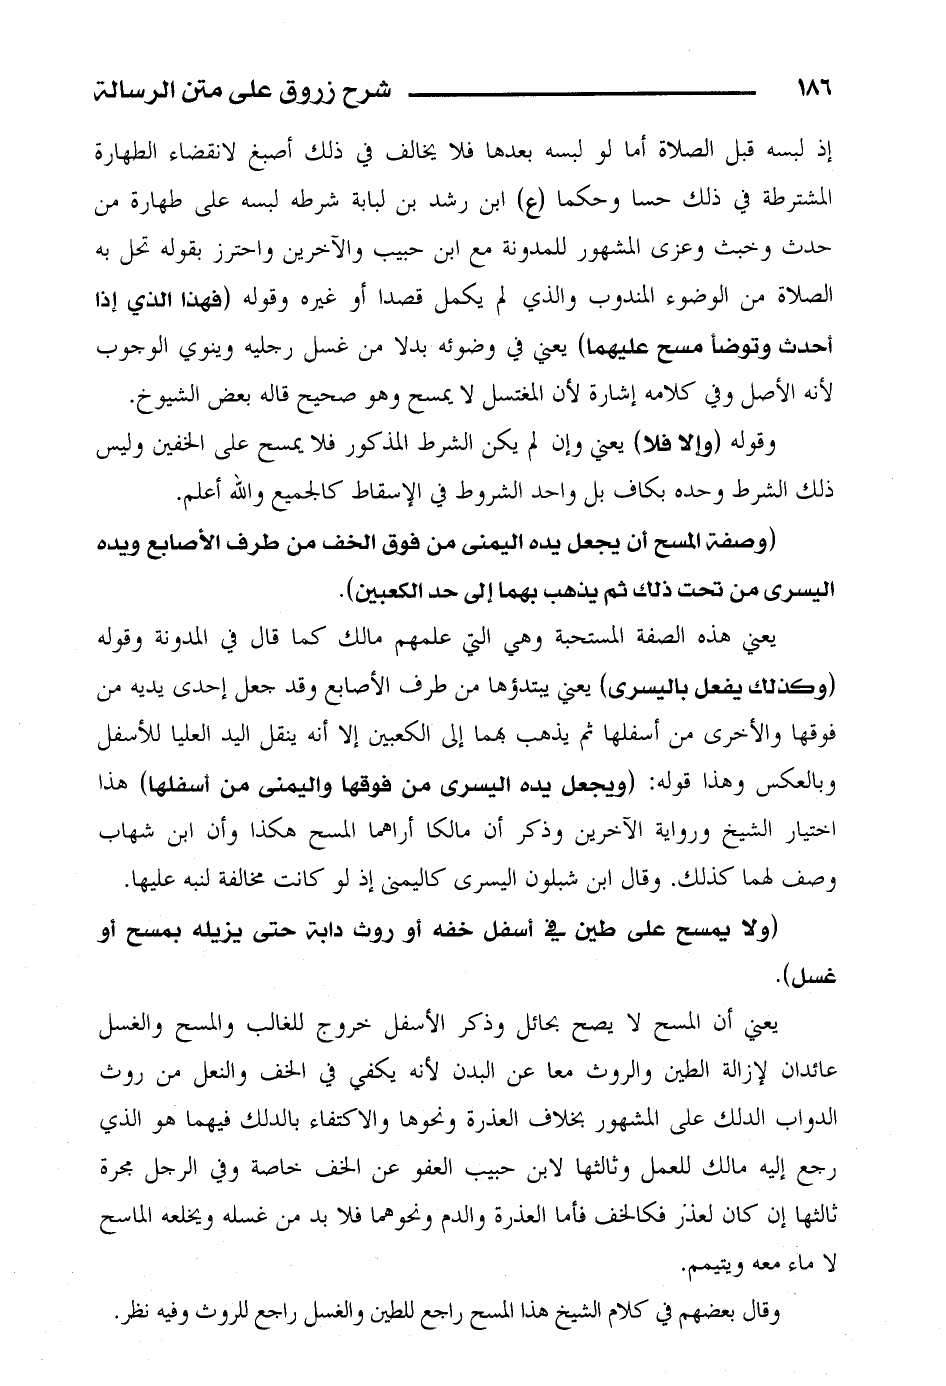 ١٨٦ شرح زروق على متن الرسالة
إذ لبسه قبل الصلاة أما لو لبسه بعدها فلا يخالف في ذلك أصبغ لانقضاء الطهارة
المشترطة في ذلك حسا وحكما (ع) ابن رشد بن لبابة شرطه لبسه على طهارة من
حدث وخبث وعزى المشهور للمدونة مع ابن حبيب والآخرين واحترز بقوله تحل به
الصلاة من الوضوء المندوب والذي لم يكمل قصدا أو غيره وقوله (فهذا الذي إذا
أحدث وتوضأ مسح عليهما) يعني في وضوئه بدلا من غسل رجليه وينوي الوجوب
لأنه الأصل وفي كلامه إشارة لأن المغتسل لا يمسح وهو صحيح قاله بعض الشيوخ.
وقوله (وإلا فلا) يعني وإن لم يكن الشرط المذكور فلا يمسح على الخفين وليس
ذلك الشرط وحده بكاف بل واحد الشروط في الإسقاط كالجميع والله أعلم.
(وصفة المسح أن يجعل يده اليمنى من فوق الخف من طرف الأصابع ويده
اليسرى من تحت ذلك ثم يذهب بهما إلى حد الكعبين).
يعني هذه الصفة المستحبة وهي التي علمهم مالك كما قال في المدونة وقوله
(وكذلك يفعل باليسرى) يعني يبتدؤها من طرف الأصابع وقد جعل إحدى يديه من
فوقها والأخرى من أسفلها ثم يذهب بهما إلى الكعبين إلا أنه ينقل اليد العليا للأسفل
وبالعكس وهذا قوله: (ويجعل يده اليسرى من فوقها واليمنى من أسفلها) هذا
اختيار الشيخ ورواية الآخرين وذكر أن مالكا أراهما المسح هكذا وأن ابن شهاب
وصف لهما كذلك. وقال ابن شبلون اليسرى كاليمنى إذ لو كانت مخالفة لنبه عليها.
(ولا يمسح على طين في أسفل خفه أو روث دابة حتى يزيله بمسح أو
غسل).
يعني أن المسح لا يصح بحائل وذكر الأسفل خروج للغالب والمسح والغسل
عائدان لإزالة الطين والروث معا عن البدن لأنه يكفي في الخف والنعل من روث
الدواب الدلك على المشهور بخلاف العذرة ونحوها والاكتفاء بالدلك فيهما هو الذي
رجع إليه مالك للعمل وثالثها لابن حبيب العفو عن الخف خاصة وفي الرجل مجرة
ثالثها إن كان لعذر فكالخف فأما العذرة والدم ونحوهما فلا بد من غسله ويخلعه الماسح
لا ماء معه ويتيمم.
وقال بعضهم في كلام الشيخ هذا المسح راجع للطين والغسل راجع للروث وفيه نظر.